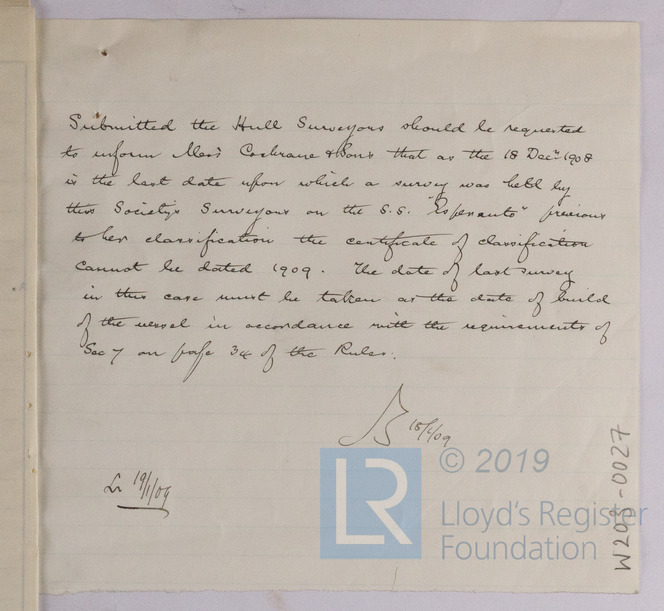 Submitted the Hull Surveyors should be requested
to inform Mess Cochrane & Sons that as the 18 Decr 1908
is the last date upon which a survey was held by
this Society's Surveyors on the S.S. "Esperanto" previous
to her classification the certificate of classification
cannot be dated 1909. The date of last survey
in this case must be taken as the date of build
of the vessel in accordance with the requirements of
Sec 7 on page 34 of the Rules.
18/1/09
19/1/09
LR
© 2019
Lloyd's Register
Foundation
W208-0027